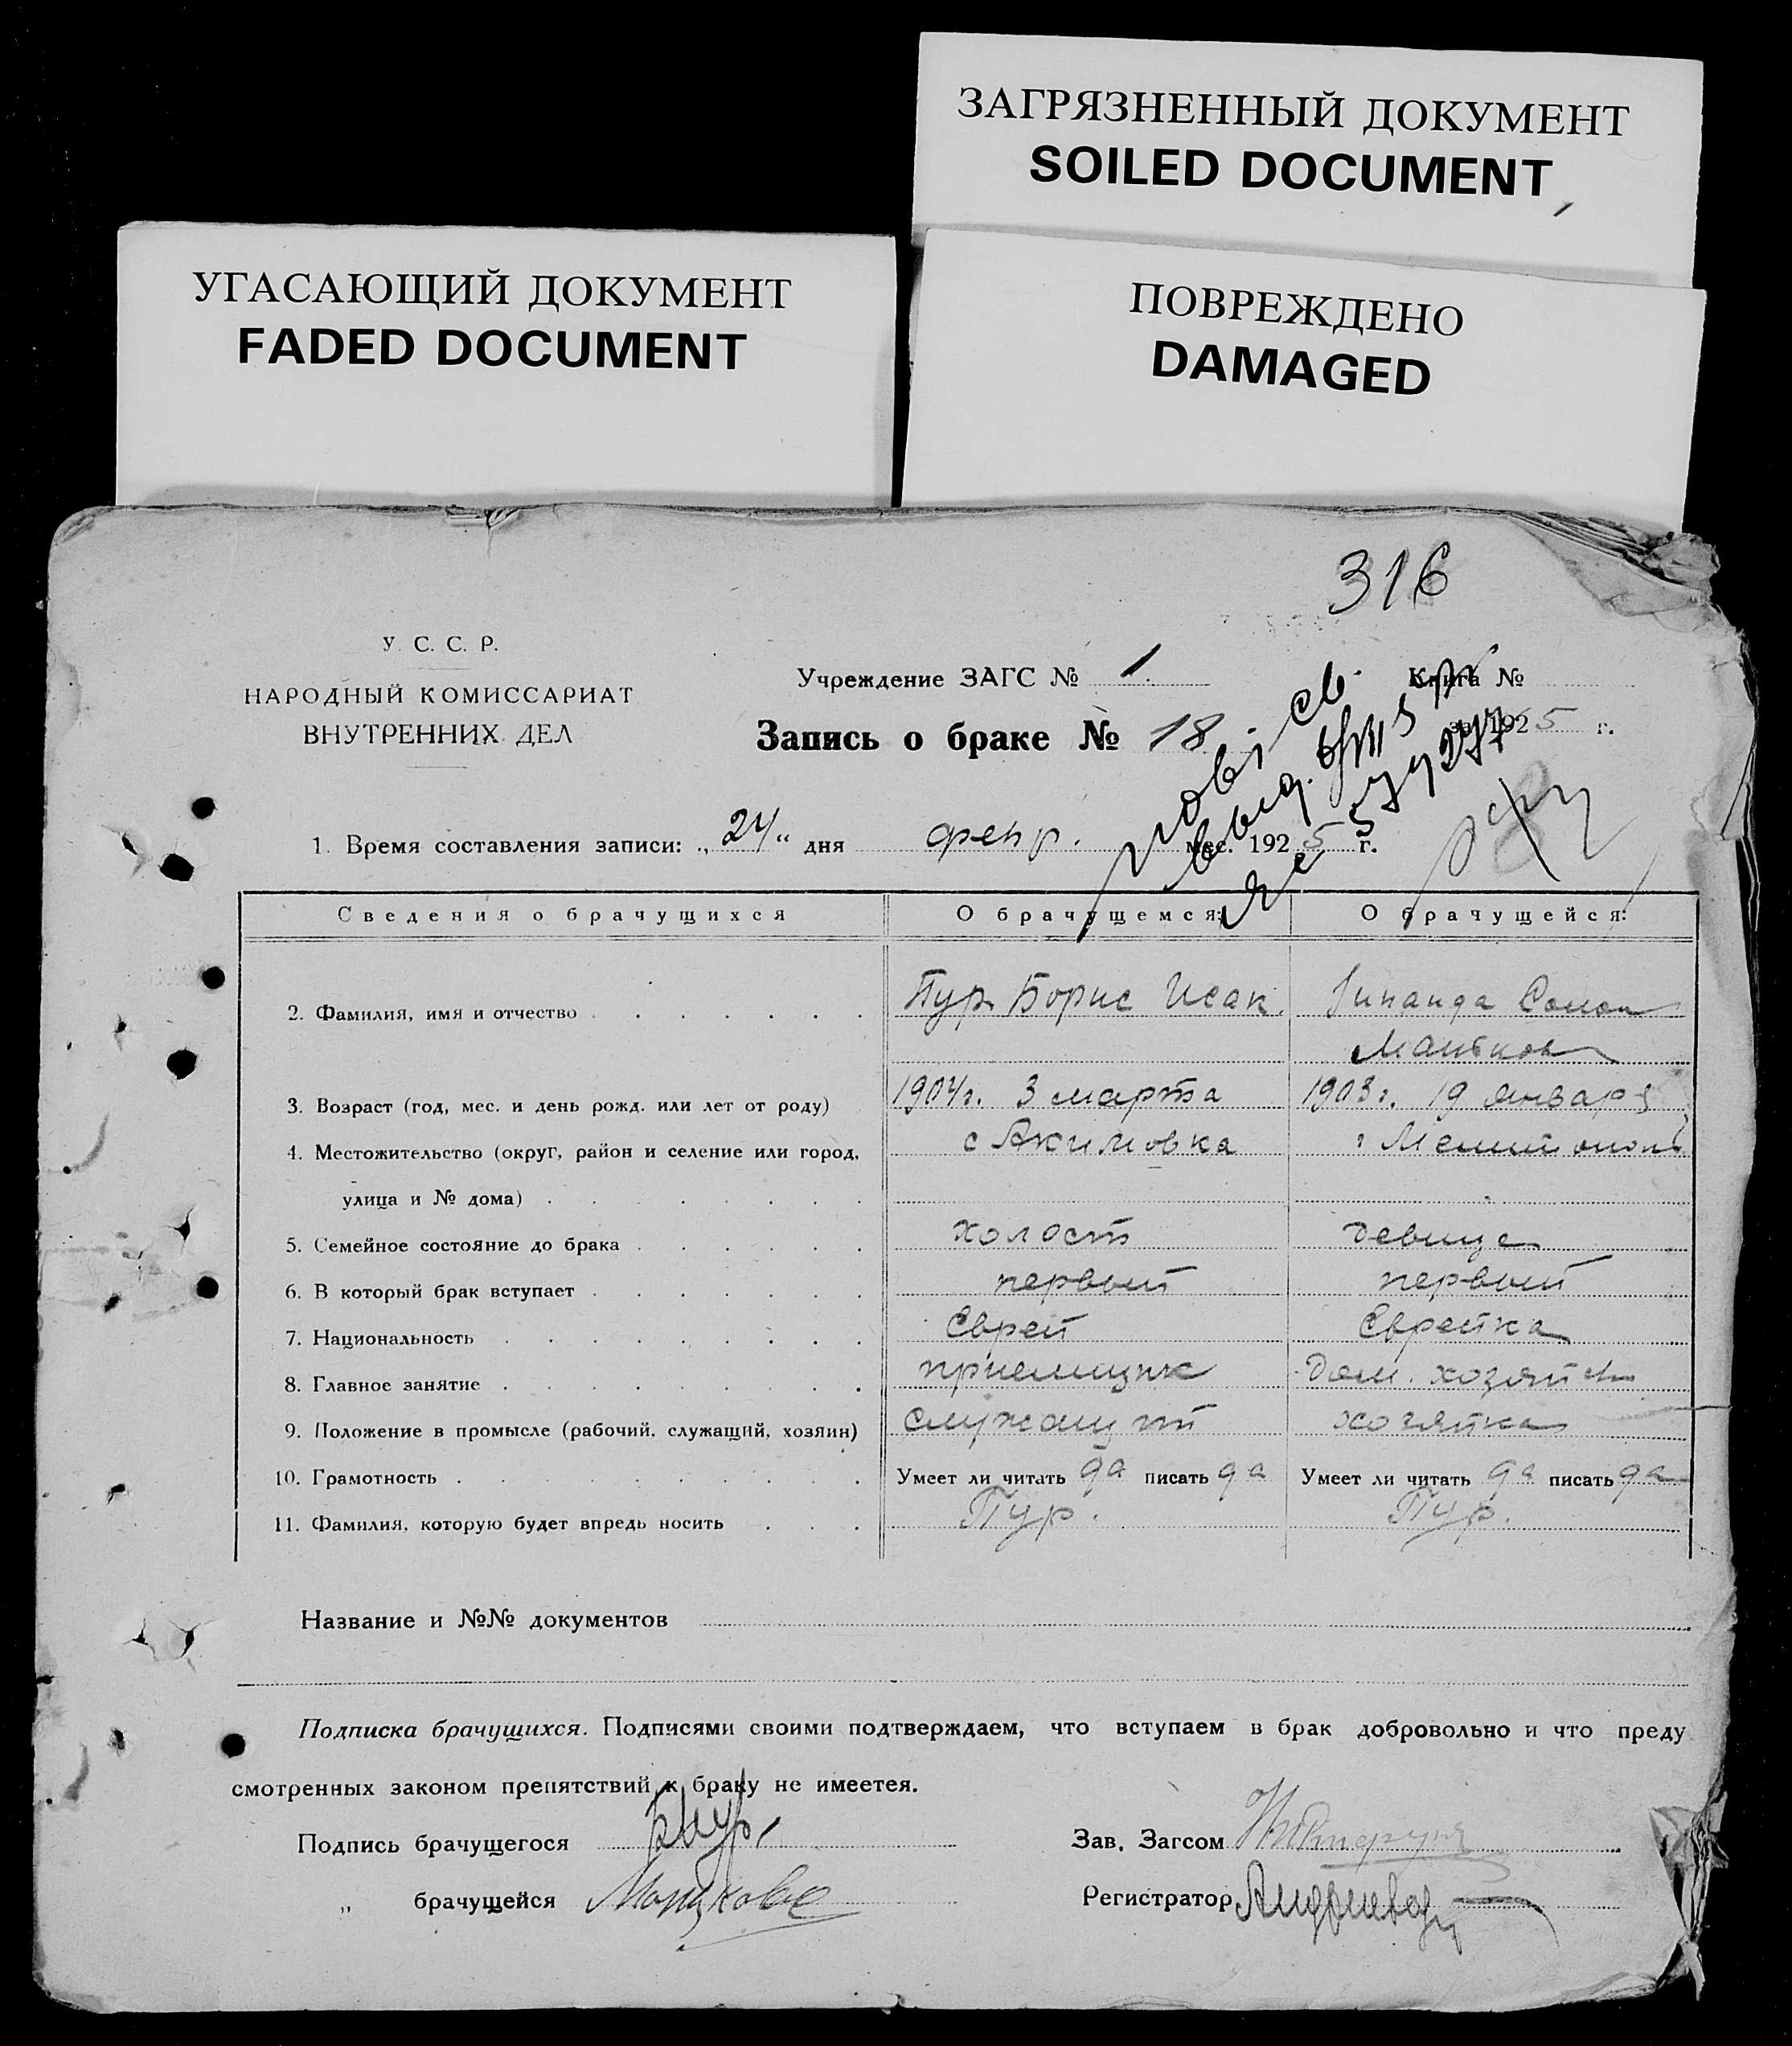 ЗАГРЯЗНЕННЫЙ ДОКУМЕНТ
SOILED DOCUMENT
УГАСАЮЩИЙ ДОКУМЕНТ
FADED DOCUMENT
ПОВРЕЖДЕНО
DAMAGED
316
У. С. С. Р.
НАРОДНЫЙ КОМИССАРИАТ
ВНУТРЕННИХ ДЕЛ
Учреждение ЗАГС № 1. Книга №
Запись о браке № 18 за 1925 г.
1. Время составления записи: „24“ дня февр. мес. 1925 г.
Сведения о брачущихся О брачущемся: О брачущейся:
2. Фамилия, имя и отчество Пур Борис Исак.
3. Возраст (год, мес. и день рожд. или лет от роду) 1904г. 3 марта 1903г. 19 января
4. Местожительство (округ, район и селение или город, с Акимовка г Мелитополь
улица и № дома)
5. Семейное состояние до брака холост девица
6. В который брак вступает первый первый
7. Национальность Еврей Еврейка
8. Главное занятие приемщик Дом. хозяйка
9. Положение в промысле (рабочий, служащий, хозяин) служащий хозяйка
10. Грамотность Умеет ли читать да писать да Умеет ли читать да писать да
11. Фамилия, которую будет впредь носить Пур. Пур.
Название и №№ документов
Подписка брачущихся. Подписями своими подтверждаем, что вступаем в брак добровольно и что преду
смотренных законом препятствий к браку не имеется.
Подпись брачущегося БПур. Зав. Загсом
„ брачущейся Регистратор